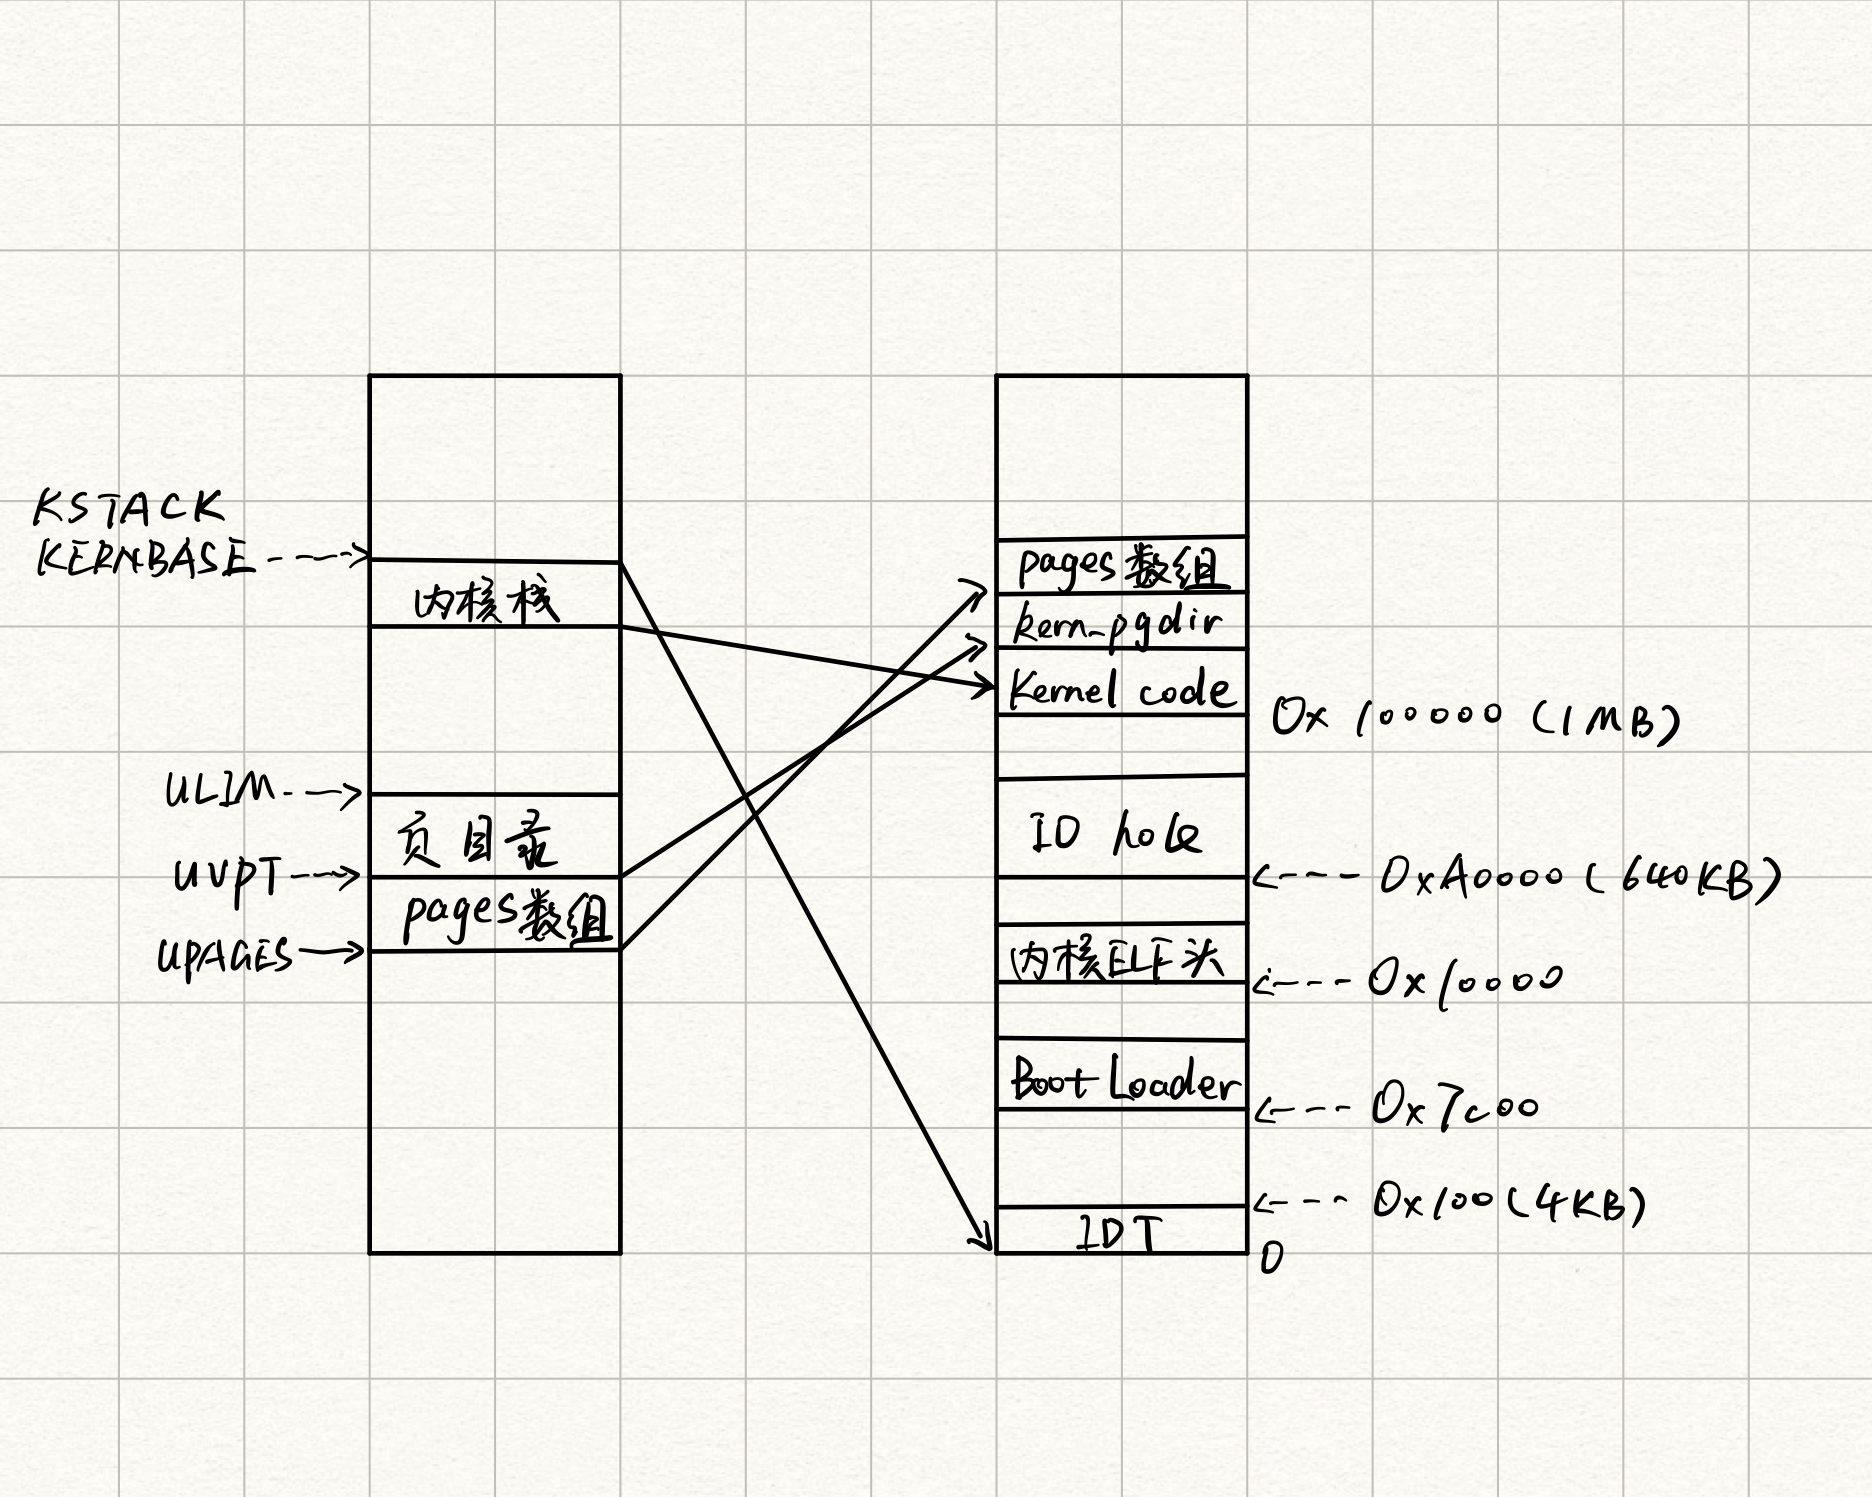 KSTACK
KERNBASE
内核栈
ULIM
页目录
UVPT
pages数组
UPAGES
pages数组
kern_pgdir
Kernel code
0x100000 (1MB)
IO hole
0xA0000 (640KB)
内核ELF头
0x10000
Boot Loader
0x7c00
0x100 (4KB)
IDT
0